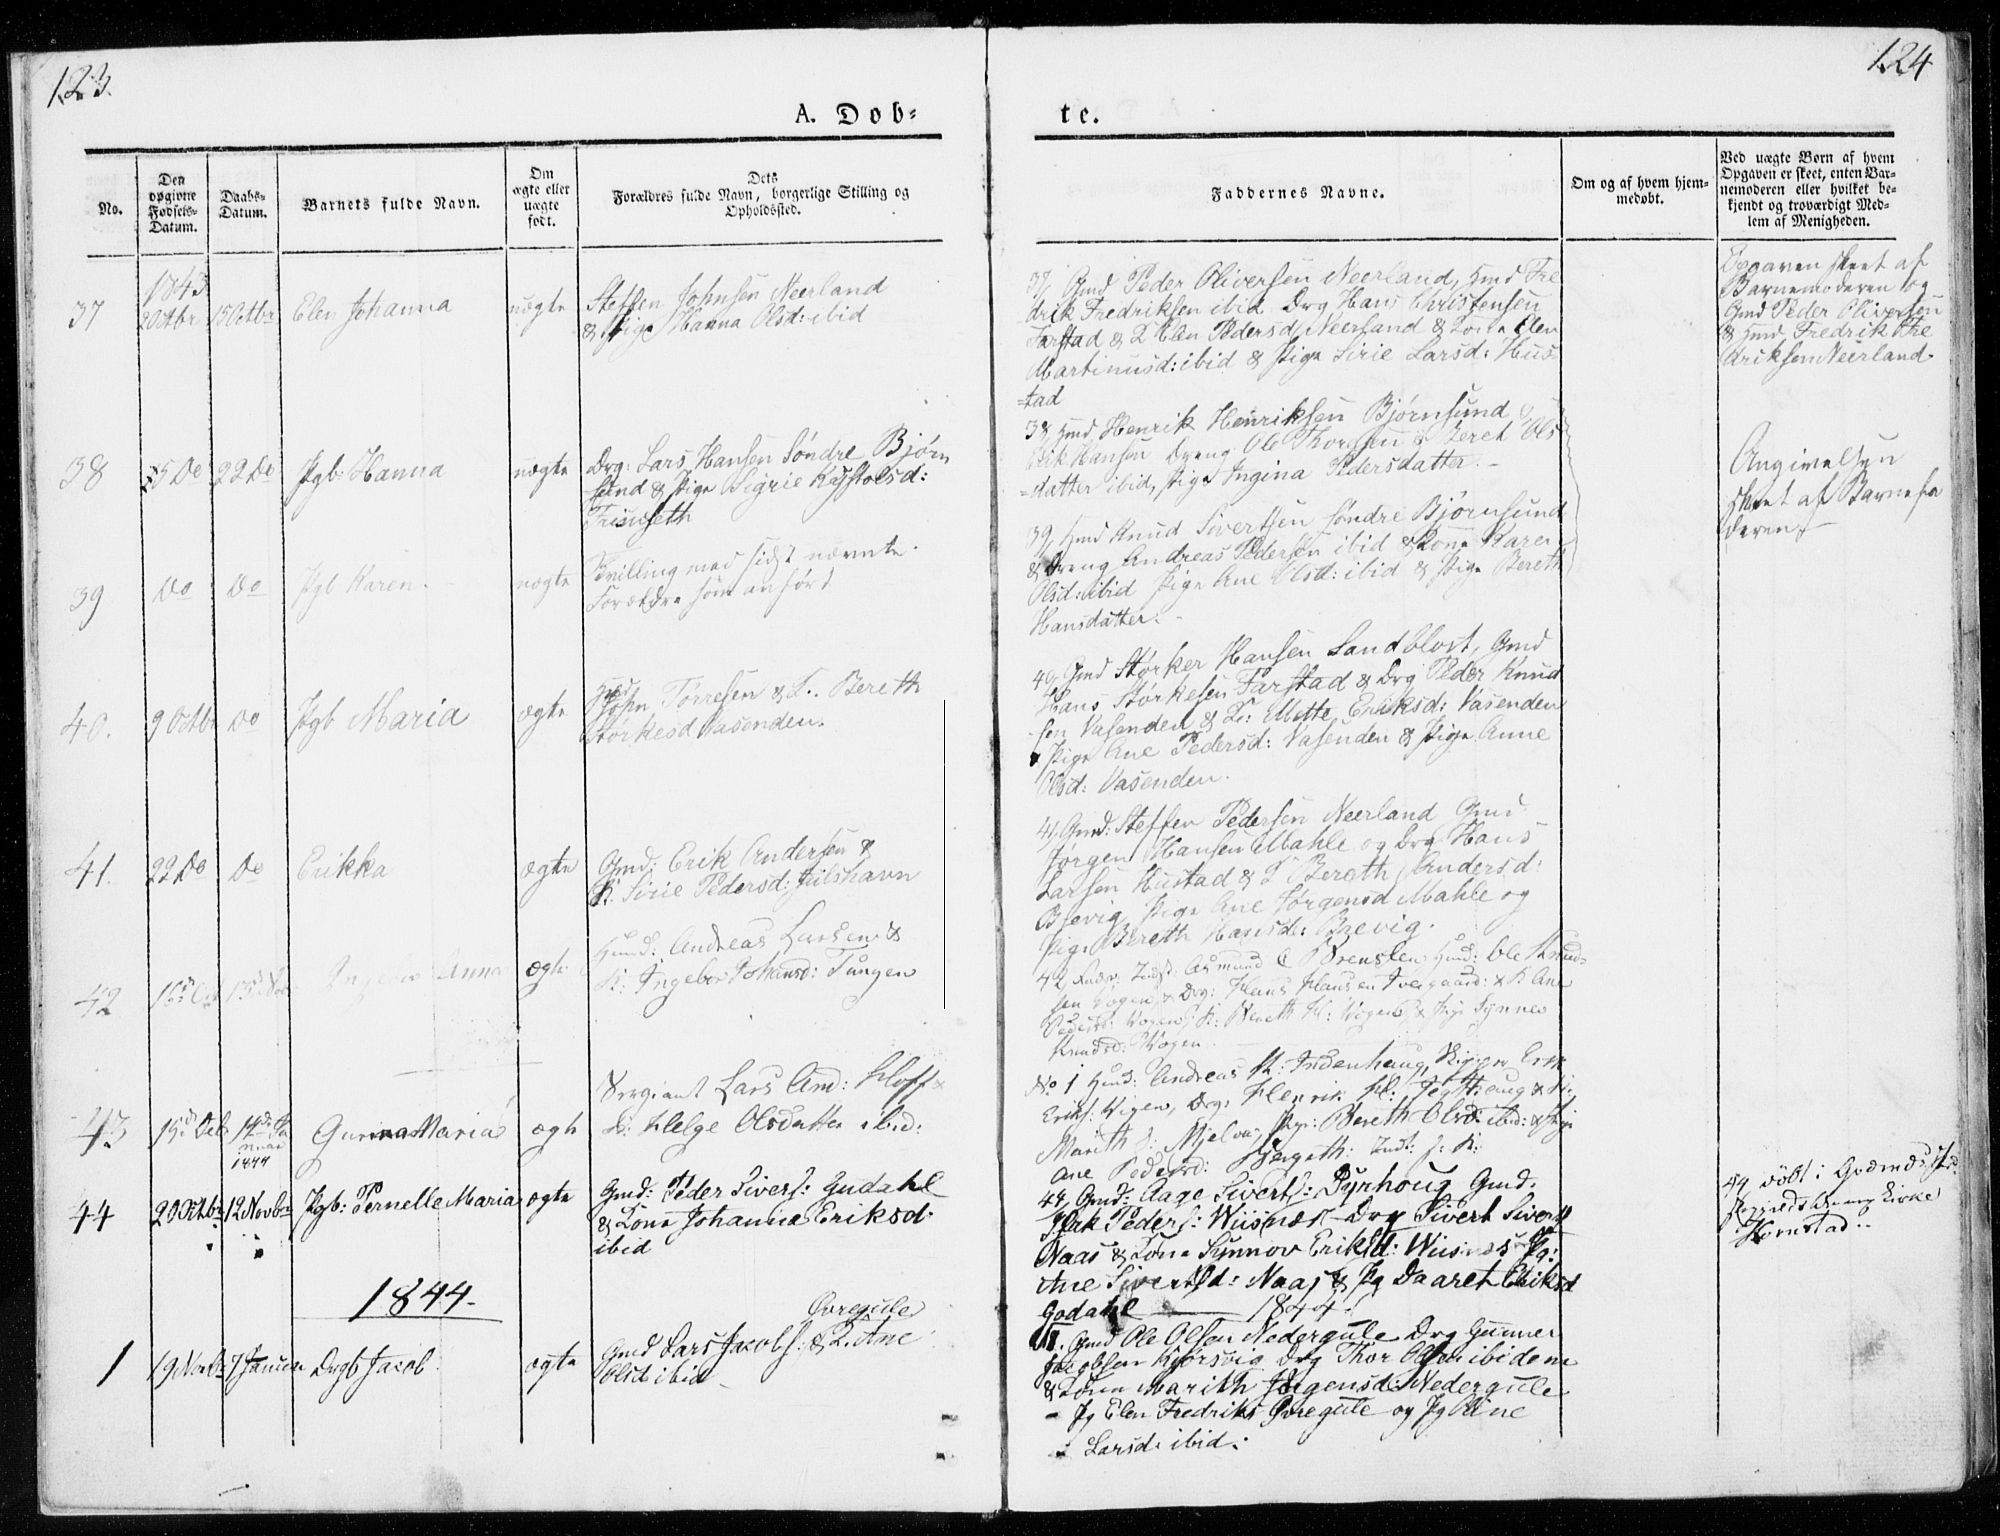 123.
124
A. Døb-
te.
No.
Den
opgivne
Fødsels-
Datum.
Daabs-
Datum.
Barnets fulde Navn.
Om
ægte eller
uægte
født.
Dets
Forældres fulde Navn, borgerlige Stilling og
Opholdssted.
Faddernes Navne.
Om og af hvem hjem-
medøbt.
Ved uægte Børn af hvem
Opgaven er skeet, enten Bar-
nemoderen eller hvilket be-
kjendt og troværdigt Med-
lem af Menigheden.
37
1843
2 Octbr
15 Octbr
Elen Johanna
uægte
Steffen Johnsen Neerland
& Pige Hanna Olsd: ibid
37, Gmd Peder Oliversen Neerland, Hmd Fre
drik Fredriksen ibid Drg Hans Christensen
Farstad & K Elen Pedersd Neerland & Kone Elen
Martinusd: ibid & Pige Sirie Larsd: Hus
=tad
Opgaven skeet af
Barnemoderen og
Gmd Peder Oliversen
& Hmd Fredrik Fre
driksen Neerland.
38
5 Do
22 Do
Pgb: Hanna
uægte
Drg: Lars Hansen Søndre Bjørn
sund & Pige Sigrie
38, Hmd Henrik Henriksen Bjørnsund
Erik Hansen Dreng Ole Thorsen & Beret Ols
=datter ibid, Pige Ingina Pedersdatter. -
Angivelsen
skeet af Barnefa
deren -
39
Do
Do
Pgb Karen. -
uægte
Tvilling med sidst nævnte.
Forældre som anført
39, Hmd Knud Sivertsen Søndre Bjørnsund
& Dreng Andreas Pedersen ibid & Kone Karen
Olsd: ibid Pige Ane Olsd: ibid & Pige Bereth
Hansdatter. -
40.
9 Octbr
Do
Pgb Maria
ægte
Hmd
John Torresen & K. Bereth
Størkesd Vasenden.
40, Gmd Størker Hansen Sandblost, Gmd
Hans Størkesen Farstad & Drg Peder Knud
sen Vasenden & K: Mette Eriksd: Vasenden
Pige Ane Pedersd: Vasenden & Pige Anne
Olsd: Vasenden.
41.
22 Do
Do
Erikka
ægte
Gmd: Erik Andersen &
K. Sirie Pedersd: Julshavn
41, Gmd: Steffen Pedersen Neerland Gmd
Jørgen Hansen Mahle og Drg Hans
Larsen Hustad & K Bereth Andersd:
Pige Ane Jørgensd Mahle og
Pige Bereth Hansd:
42
Anna
ægte
Hmd: Andreas Larsen &
K: Ingebor Johansd: Tungen
Hmd: Ole Knud-
sen Vogen, & Drg: Hans Hansen & K Ane
Pedersd: Vogen, K: Bereth Vogen & Pige Synnev
Knudsd: Vogen
43
15d Oct
14d Ja
nuar
1844
Maria
ægte
Sergiant Lars And: Hoff &
K: Helge Olsdatter ibid:
No 1 Hmd: Andreas Indenhaug, Skipper Erik
Eriks: Vigen, Drg: Henrik
Marith Mjelva, Pge: Bereth Olsd: ibid: & Pige
Ane Pedersd:
44
20 Octbr
12 Novbr
Pgb: Pernelle Maria
ægte
Gmd: Peder Sivers: Gudahl
& Kone Johanna Eriksd:
ibid
44, Gmd: Aage Siverts: Dyrhoug Gmd.
Erik Peders: Wiisnæs - Drg Sivert Sivers
Naas & Kone Synnov Eriksd: Wiisnæs Pg:
Ane Sivertsd: Naas & Pg Daaret Eriksd
Godahl
44 døbt i
Kirke
Kornstad..
1844.
1844.
1
19 Novbr
7 Januar
Drgb Jacob.
ægte
Øvregule
Gmd Lars Jacobs: & K. Ane
Olsd ibid -
1. Gmd Ole Olsen Nedergule Drg Gunner
Jacobsen Kjørsvig Drg Thor Olsen ibidem
& Kone Marith Jørgensd: Nedergule
- Pg Elen Fredriks Øvregule og Pg Oline
Larsd: ibid.